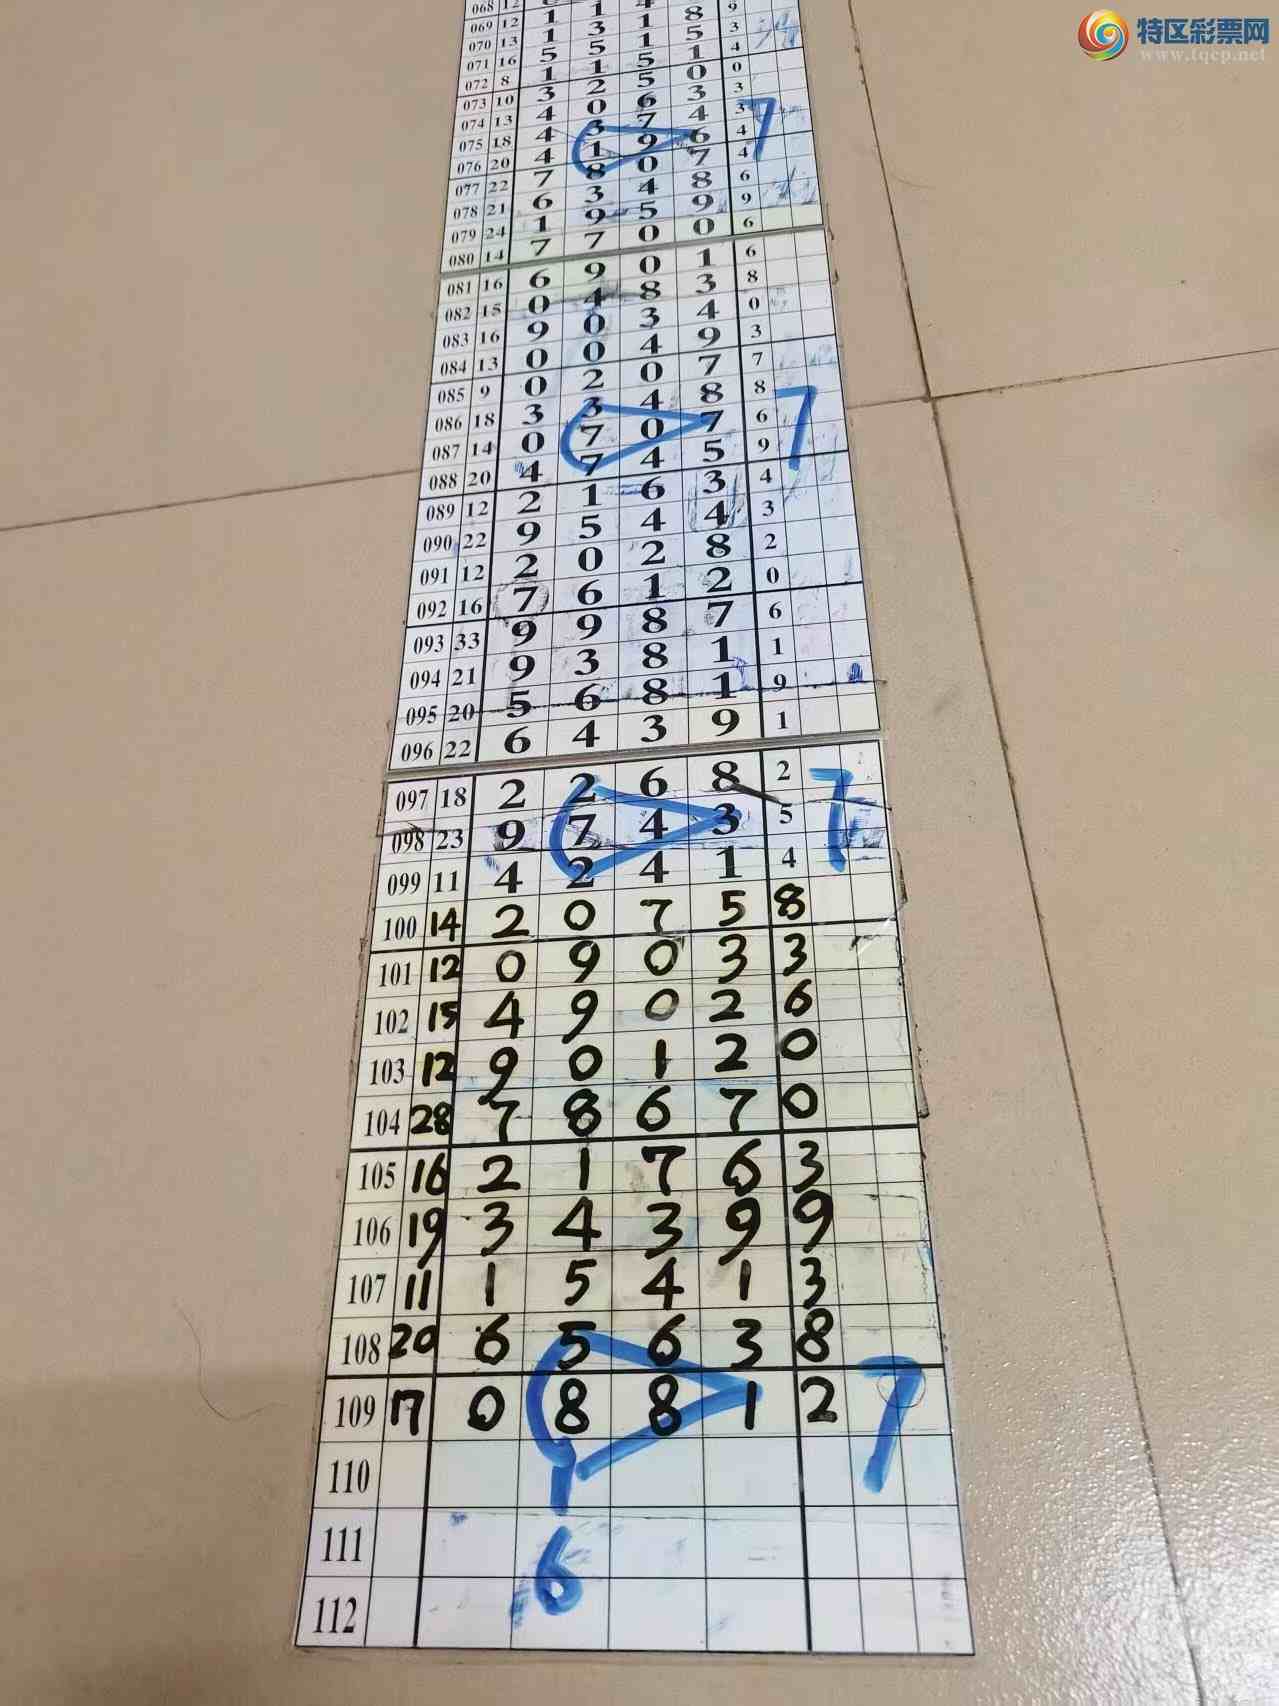 特区彩票网
www.tqcp.net
068 12
069 12 1 1 4
070 13 1 3 1 8 9
071 16 5 5 1 5 3
072 8 1 1 5 1 4
073 10 3 2 5 0 0
074 13 4 0 6 3 3
075 18 4 3 7 4 3 7
076 20 4 1 9 6 4
077 22 7 8 0 7 4
078 21 6 3 4 8 6
079 24 1 9 5 9 9
080 14 7 7 0 0 6
081 16 6 9 0 1 6
082 15 0 4 8 3 8
083 16 9 0 3 4 0
084 13 0 0 4 9 3
085 9 0 2 0 7 7
086 18 3 3 4 8 8
087 14 0 7 0 7 6 7
088 20 4 7 4 5 9
089 12 2 1 6 3 4
090 22 9 5 4 4 3
091 12 2 0 2 8 2
092 16 7 6 1 2 0
093 33 9 9 8 7 6
094 21 9 3 8 1 1
095 20 5 6 8 1 9
096 22 6 4 3 9 1
097 18 2 2 6 8 2
098 23 9 7 4 3 5 7
099 11 4 2 4 1 4
100 14 2 0 7 5 8
101 12 0 9 0 3 3
102 15 4 9 0 2 6
103 12 9 0 1 2 0
104 28 7 8 6 7 0
105 16 2 1 7 6 3
106 19 3 4 3 9 9
107 11 1 5 4 1 3
108 20 6 5 6 3 8
109 17 0 8 8 1 2 7
110 1
111 6
112